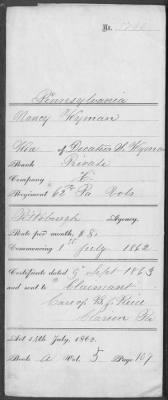 No.
Pennsylvania
Nancy Wyman
Wid. of Decatur S. Wyman
Rank Private
Company
Regiment 62nd Pa Vols
Pittsburgh Agency.
Rate per month, $8
Commencing 1st July 1862
Certificate dated 9 Sept 1863
and sent to Claimant
Care of
Clarion Pa
Act 14th July, 1862.
Book A Vol. 5 Page 107